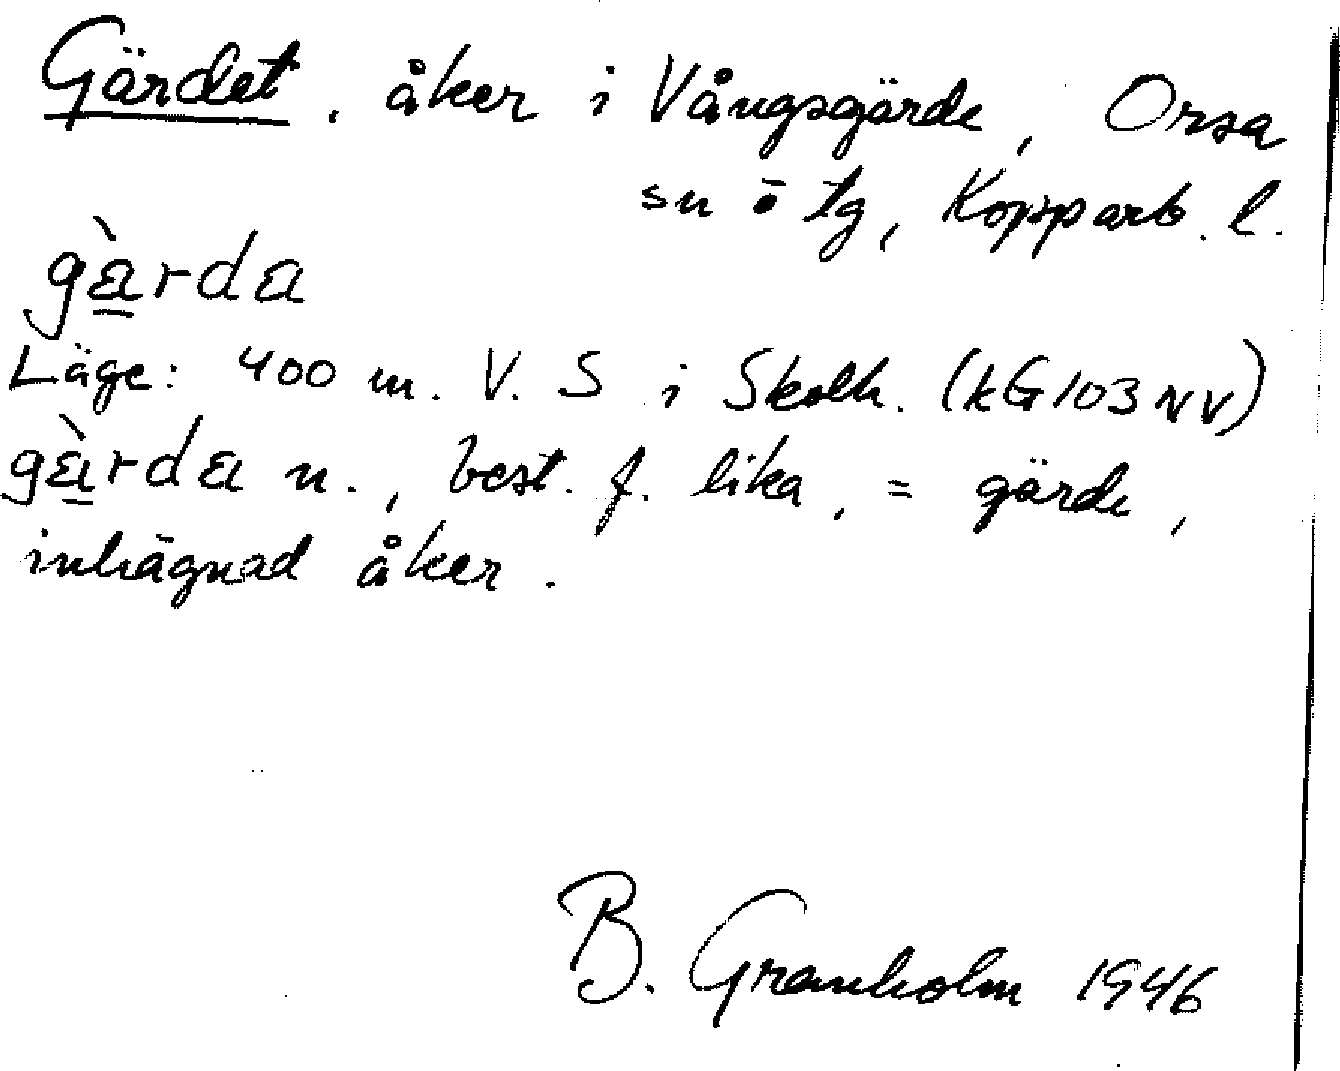 Gärdet, åker i Vångsgärde, Orsa
sn o tg, Kopparb. l.
gàrda
Läge: 400 m. V. S i Skolh. (kG103NV)
gàrda n., best. f. lika, = gärde,
inhägnad åker.
B. Granholm 1946